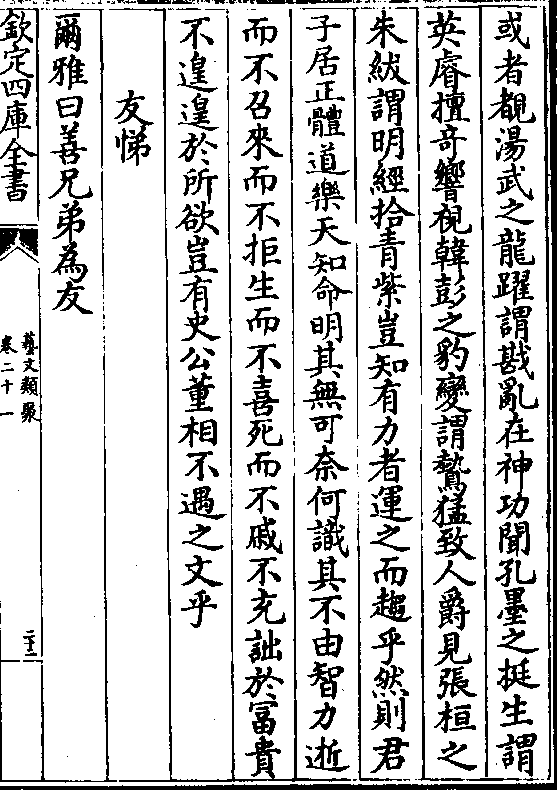 或者覩湯武之龍躍謂戡亂在神功聞孔墨之挺生謂
英睿擅奇響視韓彭之豹變謂鷙猛致人爵見張桓之
朱紱謂明經拾青紫豈知有力者運之而趨乎然則君
子居正體道樂天知命明其無可奈何識其不由智力逝
而不召來而不拒生而不喜死而不戚不充詘於富貴
不遑遑於所欲豈有史公董相不遇之文乎
友悌
爾雅曰善兄弟為友
欽定四庫全書
藝文類聚
卷二十一
二十二